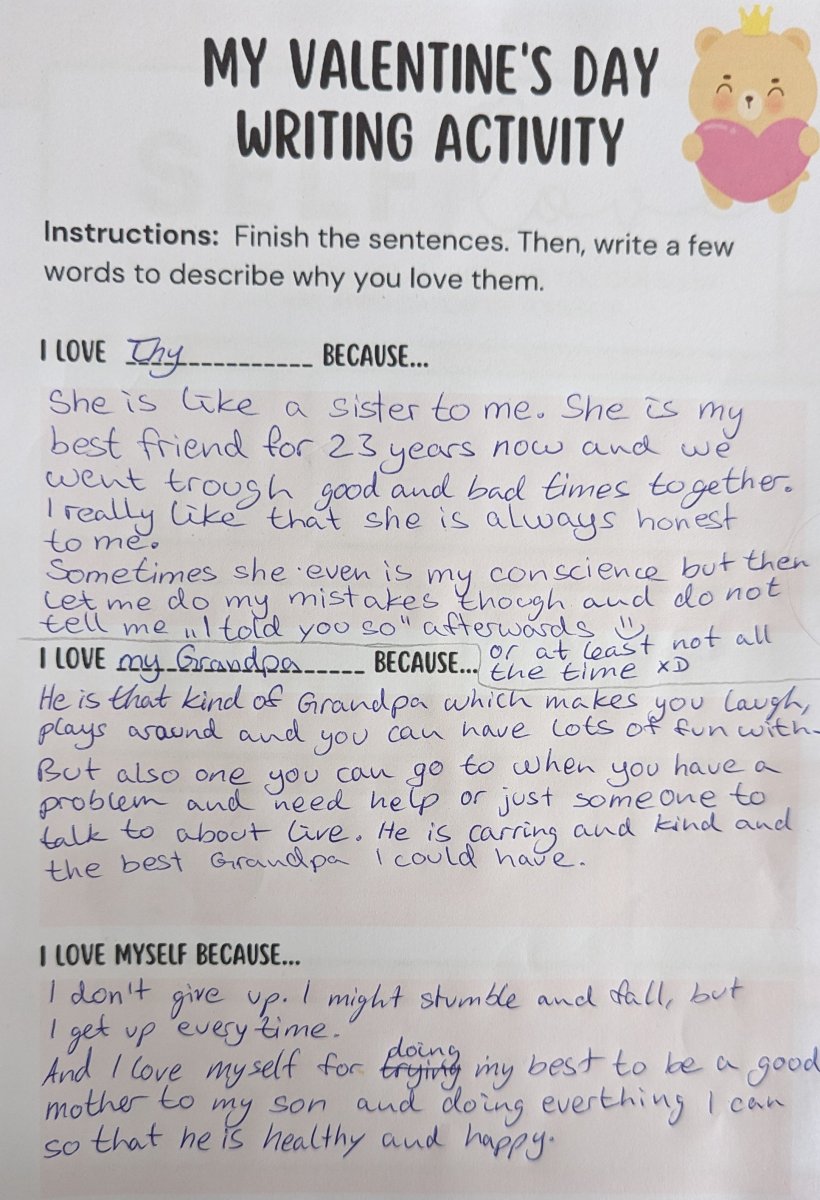 MY VALENTINE'S DAY
WRITING ACTIVITY
Instructions: Finish the sentences. Then, write a few
words to describe why you love them.
I LOVE Thy BECAUSE...
She is like a sister to me. She is my
best friend for 23 years now and we
went trough good and bad times together.
I really like that she is always honest
to me.
Sometimes she even is my conscience but then
let me do my mistakes though and do not
tell me „I told you so" afterwards :)
or at least not all
the time xD
I LOVE my Grandpa BECAUSE...
He is that kind of Grandpa which makes you laugh,
plays around and you can have lots of fun with.
But also one you can go to when you have a
problem and need help or just someone to
talk to about live. He is carring and kind and
the best Grandpa I could have.
I LOVE MYSELF BECAUSE...
I don't give up. I might stumble and fall, but
I get up every time.
And I love myself for trying doing my best to be a good
mother to my son and doing everthing I can
so that he is healthy and happy.